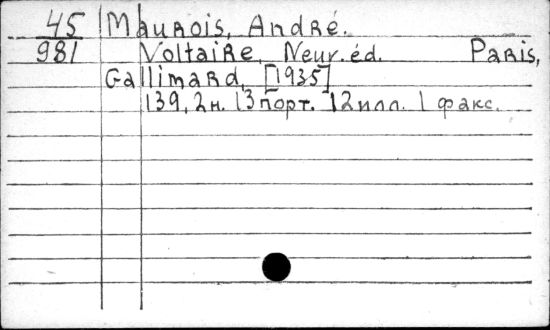 45 Maurois, André.
981 Voltaire. Neuv. éd. Paris,
Gallimard, [1935]
139, 2 н. 13 порт. 12 илл. 1 факс.